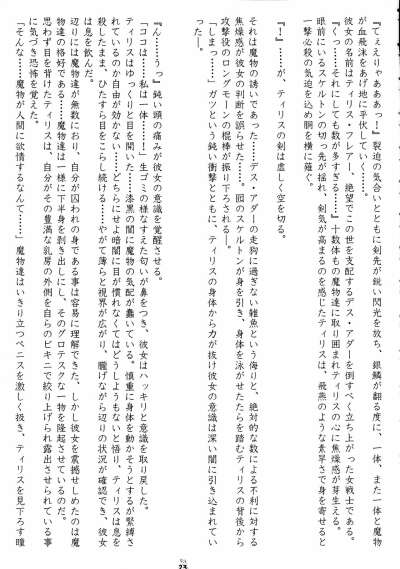 『てぇえりゃあああっ！』裂迫の気合いとともに剣先が鋭く閃光を放ち、銀鱗が翻る度に、一体、また一体と魔物
が血飛沫をあげ地に平伏していく―。
彼女の名前はティリス・フレアー、絶望でこの世を支配するデス・アダーを倒すべく立ち上がった女戦士である。
『くっ……それにしても数が多すぎる……』十数体もの魔物達に取り囲まれティリスの心に焦燥感が芽生える。
眼前にいるスケルトンの切っ先が揺れ、剣気が高まるのを感じたティリスは、飛燕のような素早さで身を寄せると
一撃必殺の気迫を込め胴を横に薙ぐ。
『！』……が、ティリスの剣は虚しく空を切る。
それは魔物の誘いであった……デス・アダーの走狗に過ぎない雑魚という侮りと、絶対的な数による不利に対する
焦燥感が彼女の判断を誤らせた……。囮のスケルトンが身を引き、身体を泳がせたたらを踏むティリスの背後から
攻撃役のロングモーンの棍棒が振り下ろされる―。
『しまっ……』ガツという鈍い衝撃とともに、ティリスの身体から力が抜け彼女の意識は深い闇に引き込まれてい
った―。
『ん……うっ』鈍い頭の痛みが彼女の意識を覚醒させる。
『ココは……私は一体……！』生ゴミの様なすえた匂いが鼻をつき、彼女はハッキリと意識を取り戻した。
ティリスはゆっくりと目を開いた……漆黒の闇に魔物の気配が蠢いている。慎重に身体を動かそうとするが緊縛さ
れているのか自由が効かない……どちらにせよ暗闇に目が慣れなくてはどうしようもないと悟り、ティリスは息を
殺したまま、ひたすら目をこらし続ける……やがて薄らと視界が広がり、朧げながら辺りの状況が確認でき、彼女
は息を飲んだ。
辺りには魔物達が無数におり、自分が囚われの身である事は容易に理解できた。しかし彼女を震撼せしめたのは魔
物達の格好である……魔物達は一様に下半身を剥き出しにし、そのグロテスクな一物を隆起させているのだ。
思わず目を背けたティリスは、自分がその豊満な乳房の外側を自らのビキニで絞り上げられ露出させられている事
に気づき恐怖を覚えた。
『そんな……魔物が人間に欲情するなんて……』魔物達はいきり立つペニスを激しく扱き、ティリスを見下ろす瞳
23